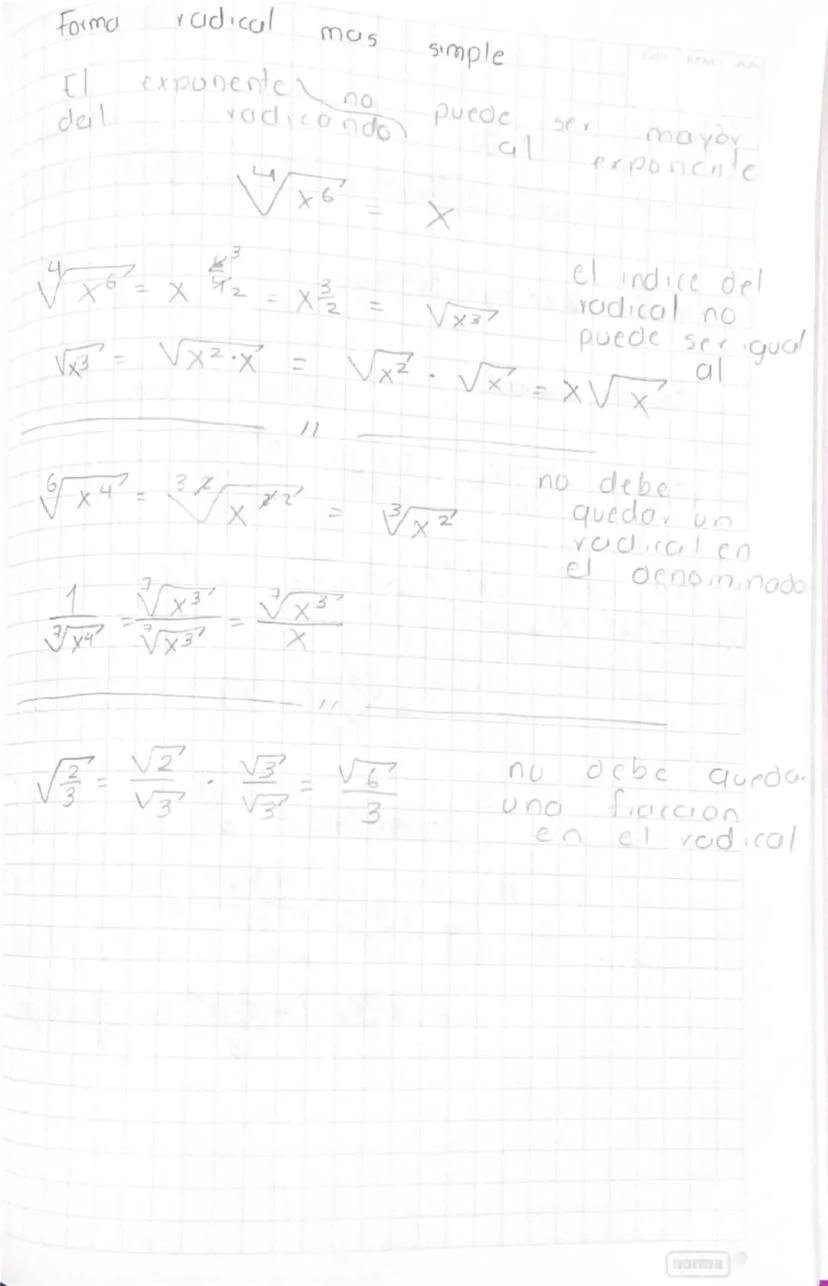 Forma radical mas simple
DD MM AA
El exponente no puede ser mayor
del radicando al exponente
⁴√x⁶ = x
⁴√x⁶ = x 6³/4₂ = x 3/2 = √x³
el indice del
radical no
puede ser igual
al
√x³ = √x²·x = √x² · √x = x√x
//
⁶√x⁴ = ³ ²√x ² ² = ³√x²
no debe
quedar un
radical en
el denominado
1/⁷√x⁴ = ⁷√x³/⁷√x³ = ⁷√x³/x
//
√2/3 = √2/√3 · √3/√3 = √6/3
no debe quedar
una fraccion
en el radical
norma